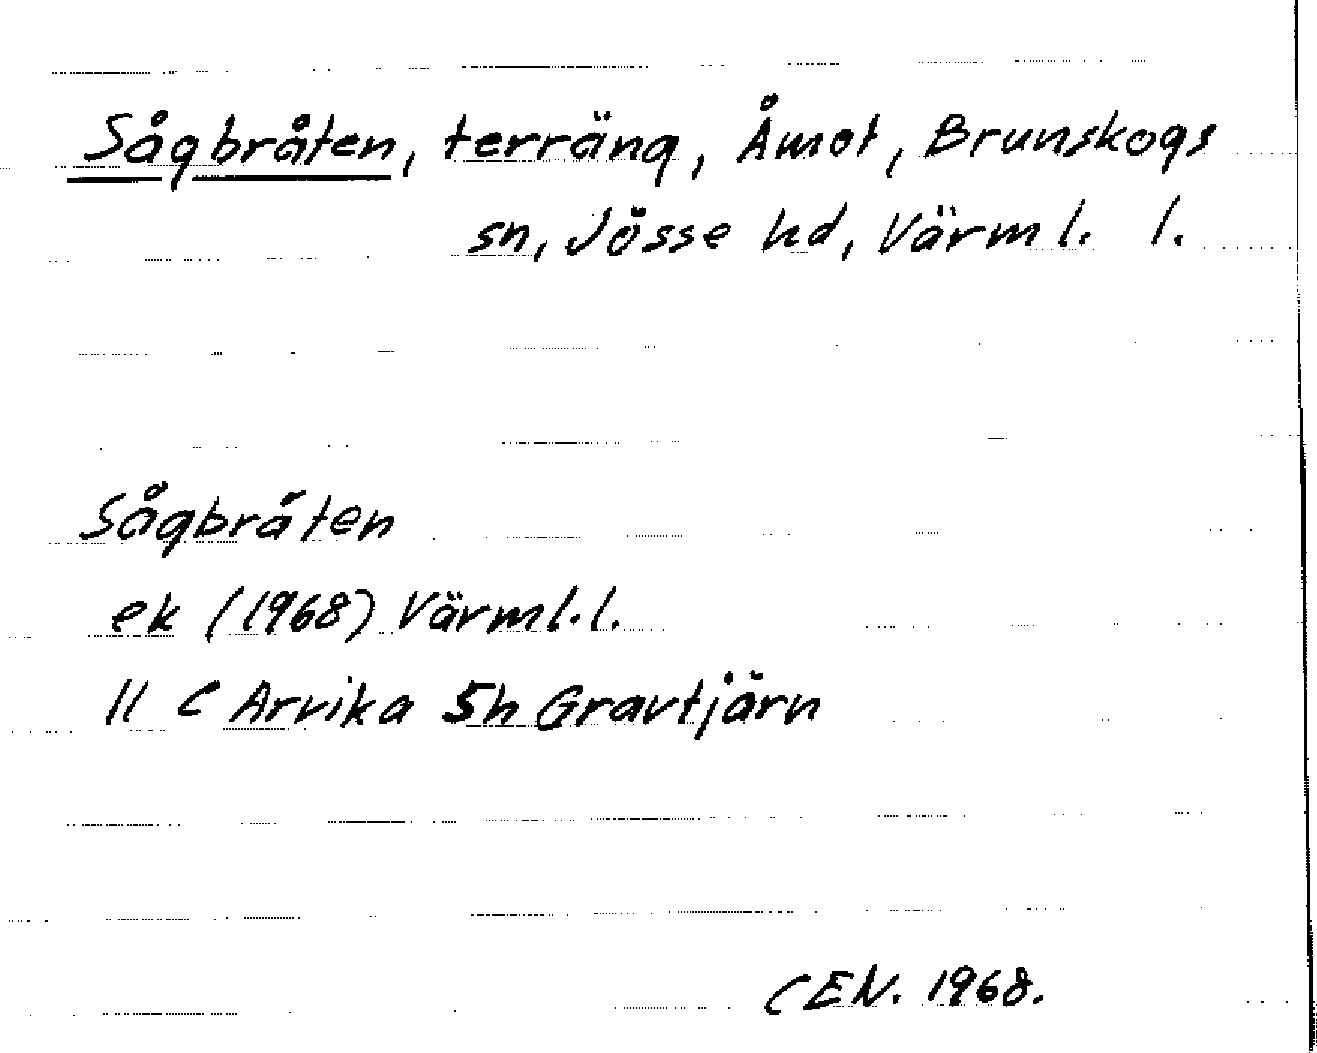 Sågbråten, terräng, Åmot, Brunskogs
sn, Jösse hd, Värml. l.
Sågbråten
ek (1968) Värml. l.
11 C Arvika 5h Gravtjärn
CEN. 1968.